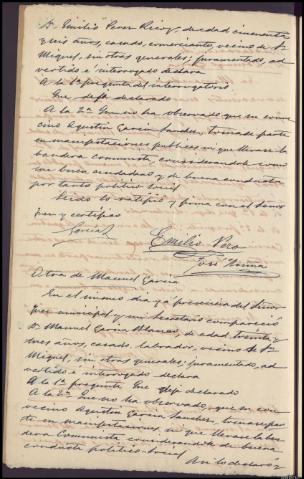 D. Emilio Pero Ricoy, de edad cincuenta
y seis años, casado, comerciante, vecino de Sn
Miguel, sin otras generales; juramentado, ad-
vertido e interrogado declara
A la 1ª pregunta del interrogatorio
Que deja declarado
A la 2ª Que no ha observado que su con-
vecino Agustin Garcia Sanchez, tomase parte
en manifestaciones publicas ni que llevase la
bandera comunista, considerandole como
de buena conducta
por tanto politico social
Leido lo ratifica y firma con el Señor
Juez y certifico
Garcia
Emilio Pero
José
Otra de Manuel Garcia
En el mismo dia y a presencia del Señor
Juez municipal y mi Secretario compareció
D. Manuel Garcia Blanco, de edad treinta y
tres años, casado, labrador, vecino de Sn
Miguel, sin otras generales; juramentado, ad-
vertido e interrogado declara
A la 1ª pregunta Que deja declarado
A la 2ª Que no ha observado, que su con-
vecino Agustin Garcia Sanchez, tomase par-
te en manifestaciones ni que llevase la ban-
dera Comunista considerandole de buena
conducta politico-social
Asi lo declaro y